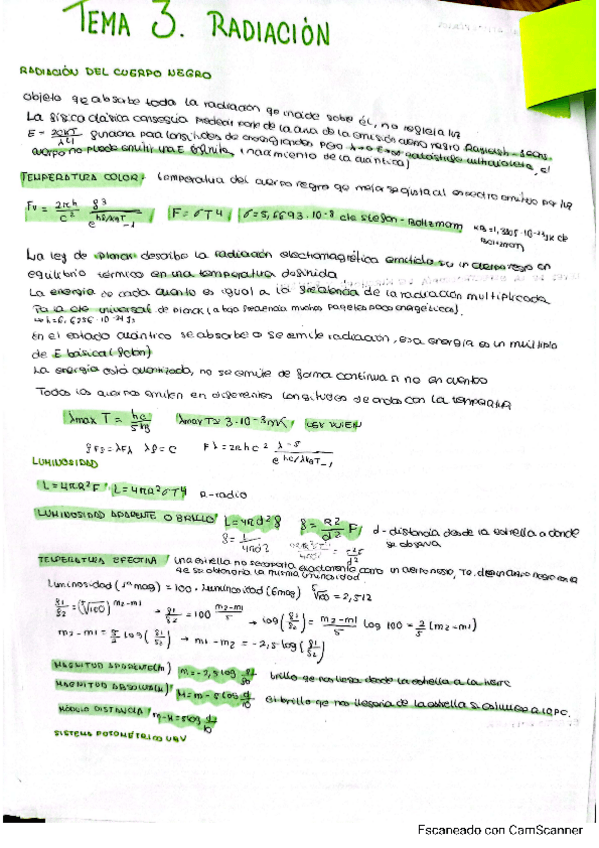 TEMA 3. RADIACIÓN
RADIACIÓN DEL CUERPO NEGRO
Objeto qe absorbe toda la radiación qe incide sobre él, no refleja luz
La física clásica conseguía predecir parte de la curva de la emisión cuerpo negro Rayleigh-Jeans.
E = 2ckT/λ4 funciona para longitudes de onda grandes pero λ→0 E→∞ catástrofe ultravioleta, el
cuerpo no puede emitir una E infinita, (nacimiento de la cuántica)
TEMPERATURA COLOR: temperatura del cuerpo negro que mejor se ajusta al espectro emitido por
Fν = 2πh/c² ν³/e^hν/kBT −1 F = σT4 σ=5,6693·10-8 cte Stefan-Boltzmann kB=1,3805·10-23 J/K cte Boltzmann
La ley de planck describe la radiación electromagnética emitida por un cuerpo negro en
equilibrio térmico en una temperatura definida
La energía de cada cuanto es igual a la frecuencia de la radiación multiplicada
Por la cte universal de planck (a baja frecuencia muchos paquetes poco energéticos).
h=6,6256·10-34 Js
En el estado cuántico se absorbe o se emite radiación, esa energía es un múltiplo
de E básica (foton)
La energía está cuantizado, no se emite de forma continua si no en cuantos
Todos los cuerpos emiten en diferentes longitudes de ondas con la temperatura
λmax T = hc/5kB λmax T≈ 3·10-3 mK, LEY WIEN
νFν = λFλ λν = C Fλ = 2πhc² λ-5/e^hc/λkBT −1
LUMINOSIDAD
L=4πR²F L=4πR²σT4 R-radio
LUMINOSIDAD APARENTE O BRILLO L=4πd²f f = R²/d² F d-distancia desde la estrella a donde
f = L/4πd² se observa
TEMPERATURA EFECTIVA una estrella no se comporta exactamente como un cuerpo negro, Tª de un cuerpo negro con la
qe se obtendría la misma luminosidad
Luminosidad (1ª mag) = 100 · luminosidad (6mag) ⁵√100 = 2,512
f1/f2 = (⁵√100)^m2-m1 → f1/f2 = 100^m2-m1/5 → log(f1/f2) = m2-m1/5 log 100 = 2/5 (m2-m1)
m2-m1 = 5/2 log(f1/f2) → m1-m2 = -2,5 log(f1/f2)
MAGNITUD APARENTE(m) m=-2,5 log f/f0 brillo qe nos llega desde la estrella a la tierra
MAGNITUD ABSOLUTA(M) M=m-5 log d/10 El brillo qe nos llegaría de la estrella si estuviese a 10 PC.
MÓDULO DISTANCIA m-M=5 log d/10
SISTEMA FOTOMÉTRICO UBV
Escaneado con CamScanner